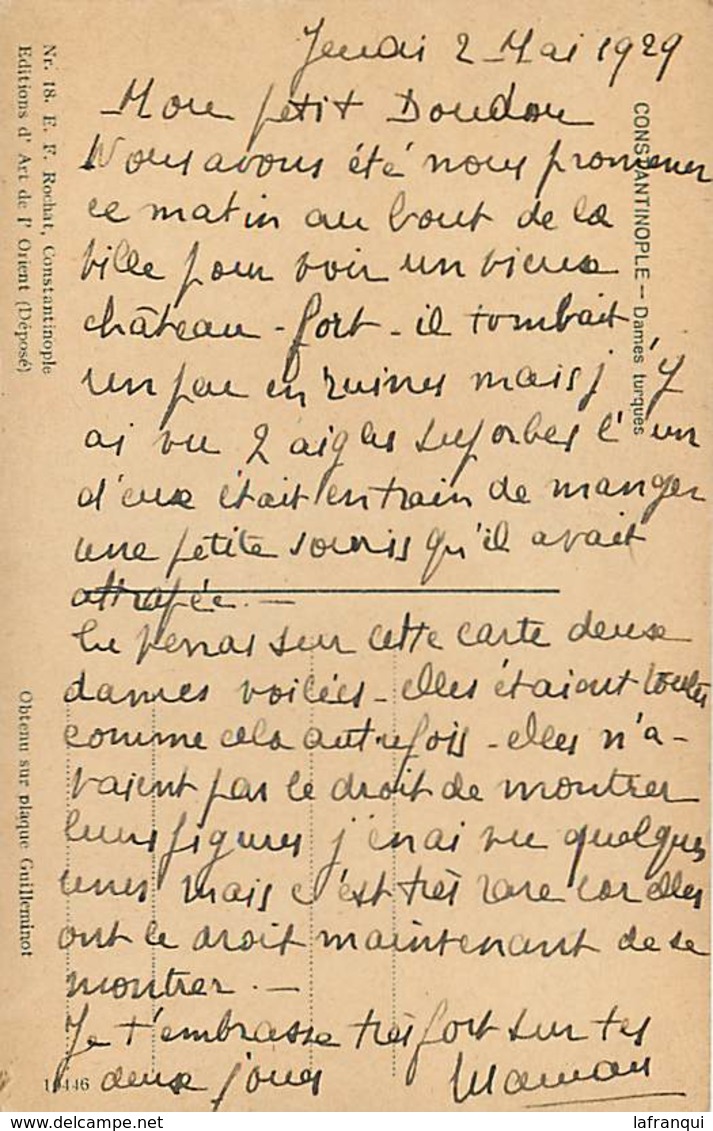 Jeudi 2 Mai 1929
Mon petit Doudou
Nous avons été nous promener
ce matin au bout de la
ville pour voir un vieux
château-fort - il tombait
un peu en ruines mais j'y
ai vu 2 aigles superbes l'un
d'eux était en train de manger
une petite souris qu'il avait
attrapée. -
Tu verras sur cette carte deux
dames voilées - elles étaient toutes
comme cela autrefois - elles n'a-
vaient pas le droit de montrer
leurs figures j'en ai vu quelques
unes mais c'est très rare car elles
ont le droit maintenant de se
montrer. -
Je t'embrasse très fort sur tes
deux joues Maman
CONSTANTINOPLE — Dames turques
Nr. 18. E. F. Rochat, Constantinople
Editions d'Art de l'Orient (Déposé)
Obtenu sur plaque Guilleminot
446
lafranqui